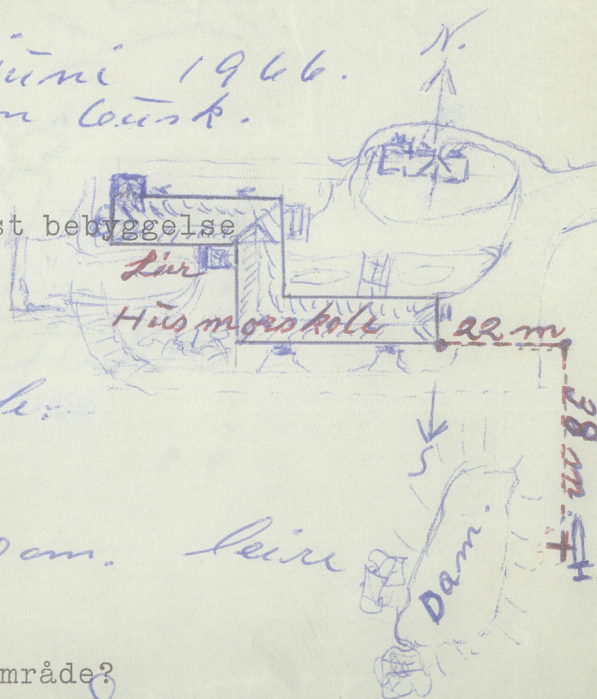 juni 1966.
N.
n busk.
st bebyggelse
Husmorskole
22 m
38 m.
S
Dam.
om. leire
mråde?